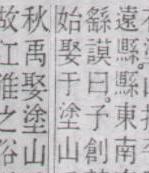 遠縣。縣東南
繇謨曰。予創
始娶于塗山
秋禹娶塗山
故江淮之俗